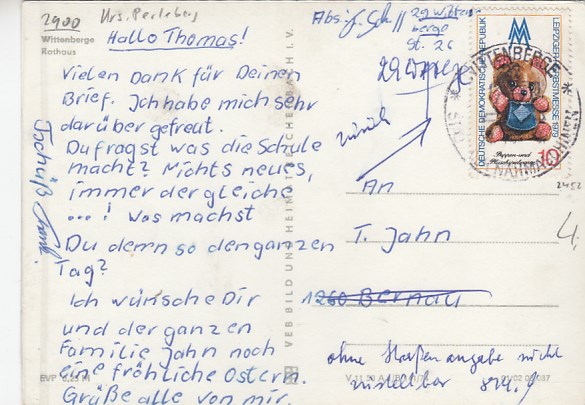 2900 Krs. Perleberg
Wittenberge
Rathaus
Hallo Thomas!
Vielen Dank für Deinen
Brief. Ich habe mich sehr
darüber gefreut.
Du fragst was die Schule
macht? Nichts neues,
immer der gleiche
...! Was machst
Du denn so den ganzen
Tag?
Ich wünsche Dir
und der ganzen
Familie Jahn noch
eine fröhliche Ostern.
Grüße alle von mir.
Tschüß
EVP 0,25 M
VEB BILD UND HEIMAT REICHENBACH I. V.
Abs.:
29 Witten
berge
St. 26
zurück
An
T. Jahn
1260 Bernau
ohne Straßenangabe nicht
zustellbar
LEIPZIGER HERBSTMESSE 1979
DEUTSCHE DEMOKRATISCHE REPUBLIK
Puppen und
10
WITTENBERGE
2452
4.